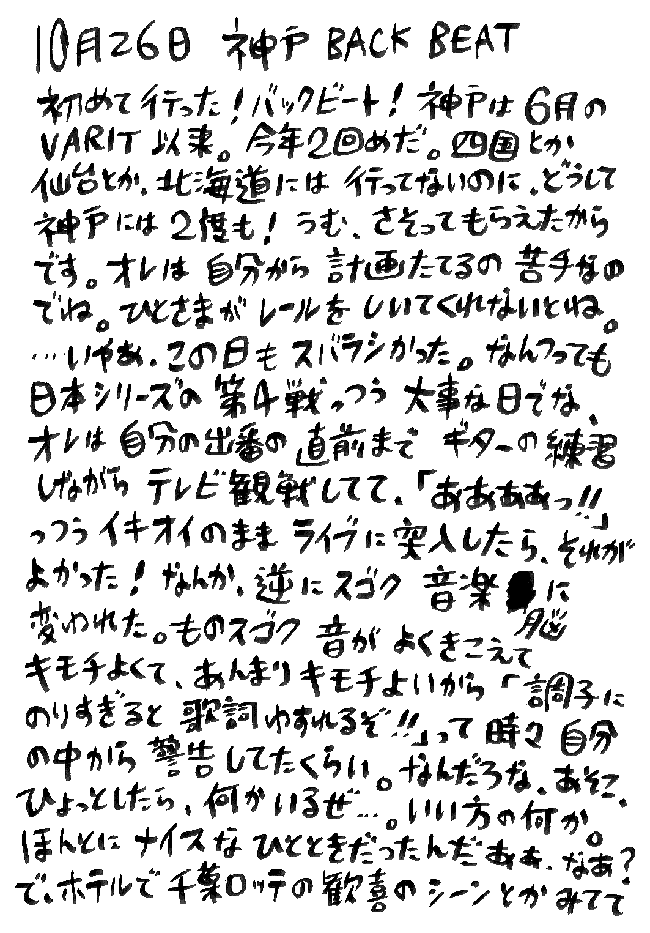 10月26日 神戸 BACK BEAT
初めて行った!バックビート!神戸は6月の
VARIT以来。今年2回めだ。四国とか
仙台とか、北海道には行ってないのに、どうして
神戸には2度も!うむ、さそってもらえたから
です。オレは自分から計画たてるの苦手なの
でね。ひとさまがレールをしいてくれないとね。
…いやあ、この日もスバラシかった。なんつっても
日本シリーズの第4戦っつう大事な日でな、
オレは自分の出番の直前までギターの練習
しながらテレビ観戦してて、「ああああっ!!」
っつうイキオイのままライブに突入したら、それが
よかった!なんか、逆にスゴク音楽脳に
変われた。ものスゴク音がよくきこえて
キモチよくて、あんまりキモチよいから「調子に
のりすぎると歌詞わすれるぞ!!」って時々自分
の中から警告してたくらい。なんだろな、あそこ、
ひょっとしたら、何かいるぜ…。いい方の何か。
ほんとにナイスなひとときだったんだぁぁ、なあ?
で、ホテルで千葉ロッテの歓喜のシーンとかみてて